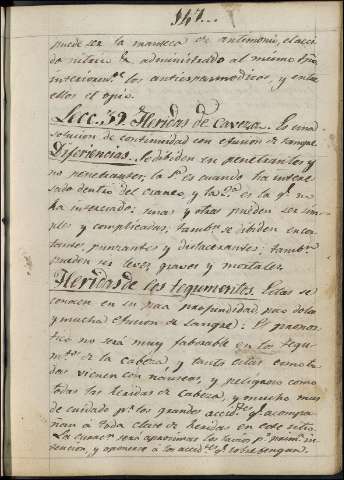 347...
puede ser la manteca de antimonio, el aci
do nitrico &. administrado al mismo tpo
interiormte los antiespasmodicos, y entre
ellos el opio.
Lecc. 32 Heridas de Caveza. Es una
solucion de continuidad con efusion de sangre
Diferiencias. Se dibiden en penetrantes y
no penetrantes, la 1a es cuando ha interes
sado dentro del craneo, y la 2a es la q. no
ha interesado: unas y otras pueden ser sim
ples y complicadas; tambn se dibiden en cor
tantes, punzantes y dislacerantes; tambn
pueden ser leves, graves y mortales.
Heridas de los tegumentos. Estas se
conocen en su poca profundidad, poco dolor
y mucha efusion de sangre: El pronos
tico no será muy faborable en los tegu
mtos de la cabeza, y tanto estas como to
das vienen con náuseas, y peligroso como
todas las heridas de cabeza, y mucho mas
de cuidado pr los grandes accidtes q. acompa
ñan á toda clase de heridas en este sitio.
La curacn será aproximar los labios pr prima in
tencion, y oponerse á los accidtes q. sobrebengan.